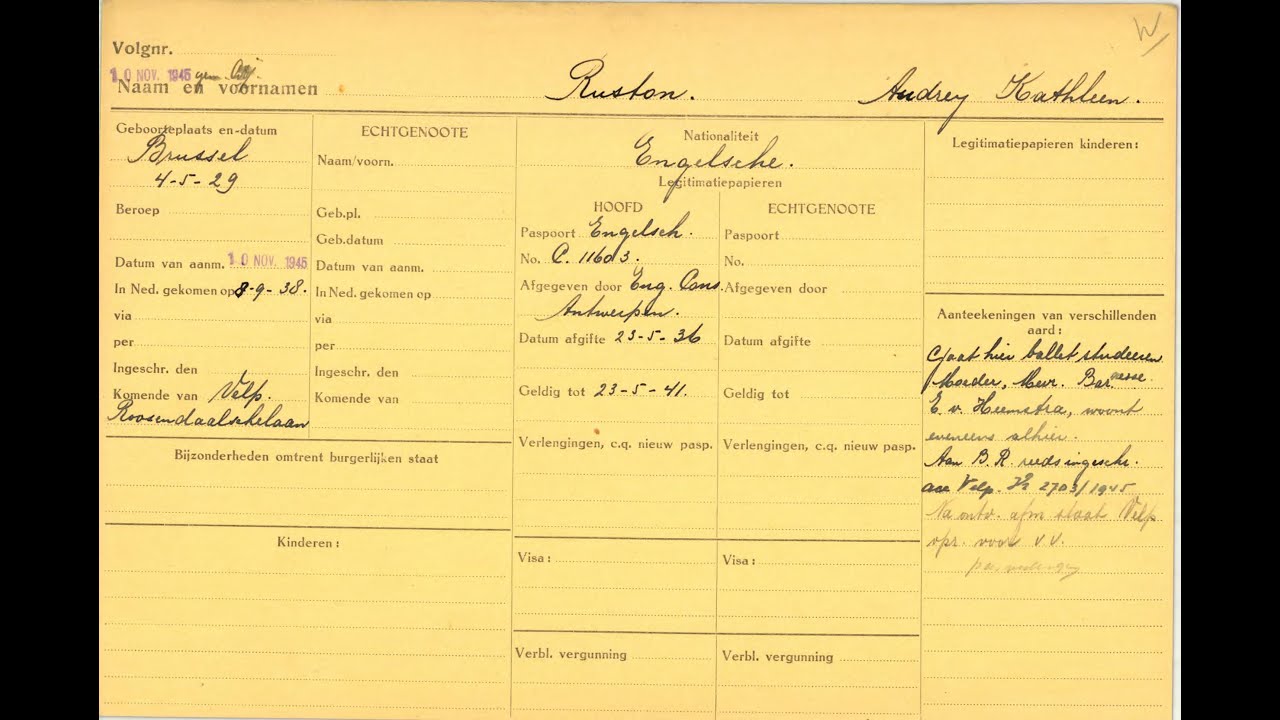 W
Volgnr.
10 NOV. 1945 gem.
Naam en voornamen Ruston. Audrey Kathleen.
Geboorteplaats en-datum
Brussel
4-5-29
Beroep
Datum van aanm. 10 NOV. 1945
In Ned. gekomen op 8-9-38.
via
per
Ingeschr. den
Komende van Velp.
Roosendaalschelaan
ECHTGENOOTE
Naam/voorn.
Geb.pl.
Geb.datum
Datum van aanm.
In Ned. gekomen op
via
per
Ingeschr. den
Komende van
Bijzonderheden omtrent burgerlijken staat
Kinderen:
Nationaliteit
Engelsche.
Legitimatiepapieren
HOOFD
Paspoort Engelsch.
No. C. 11603.
Afgegeven door Eng. Cons.
Antwerpen.
Datum afgifte 23-5-36
Geldig tot 23-5-41.
Verlengingen, c.q. nieuw pasp.
Visa:
Verbl. vergunning
ECHTGENOOTE
Paspoort
No.
Afgegeven door
Datum afgifte
Geldig tot
Verlengingen, c.q. nieuw pasp.
Visa:
Verbl. vergunning
Legitimatiepapieren kinderen:
Aanteekeningen van verschillenden
aard:
Gaat hier ballet studeeren
Moeder, Mevr. Baronesse
E. v. Heemstra, woont
eveneens alhier.
Aan B. R. reeds ingeschr.
Velp. 2703/1945
Na ontv. afm staat Velp
opr. voor v.v.